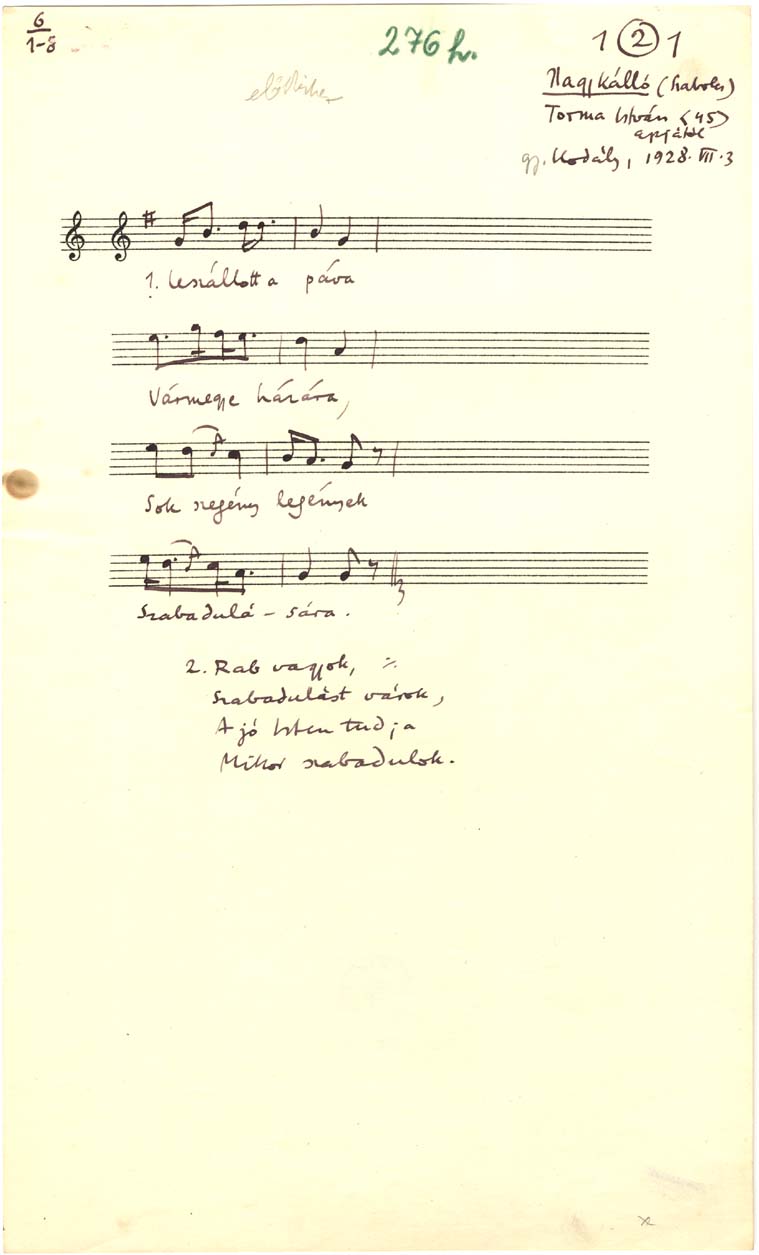 6
1-8
276 h.
1 2 1
Nagykálló (Szabolcs)
Torma István (45)
apjától
gy. Kodály, 1928. VII. 3
1. Leszállott a páva
Vármegye házára,
Sok szegény legények
Szabadulá - sára.
2. Rab vagyok, ·/.
Szabadulást várok,
A jó Isten tudja
Mikor szabadulok.